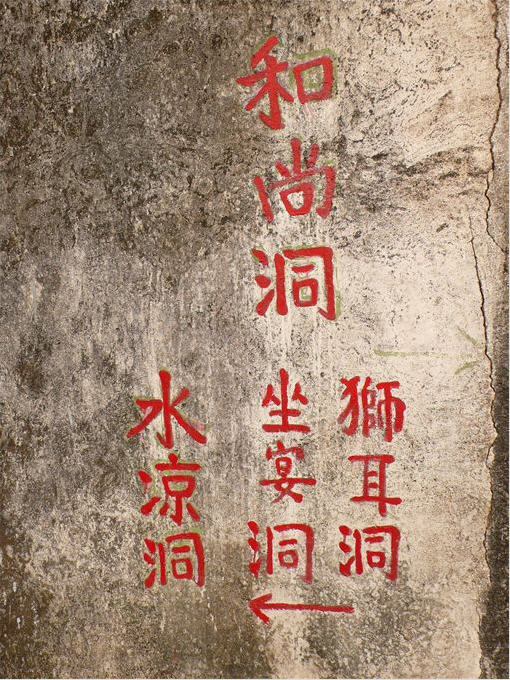 和尚洞
獅耳洞
坐宴洞
水凉洞